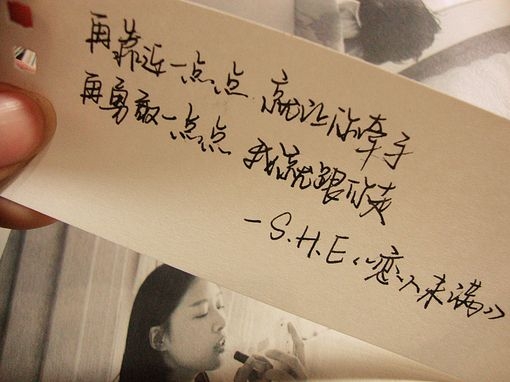 再靠近一点点 就让你牵手
再勇敢一点点 我就跟你走
- S.H.E《恋人未满》